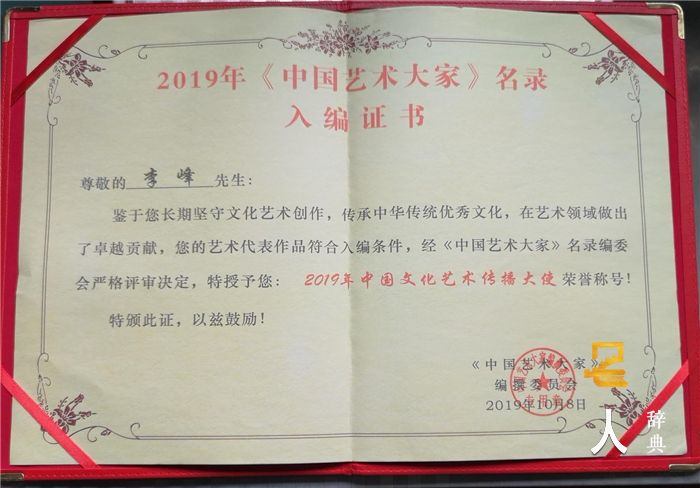 2019年《中国艺术大家》名录
入编证书
尊敬的 李峰 先生：
鉴于您长期坚守文化艺术创作，传承中华传统优秀文化，在艺术领域做出
了卓越贡献，您的艺术代表作品符合入编条件，经《中国艺术大家》名录编委
会严格评审决定，特授予您： 2019年中国文化艺术传播大使 荣誉称号！
特颁此证，以兹鼓励！
《中国艺术大家》
编撰委员会
2019年10月8日
专用章
人 辞典